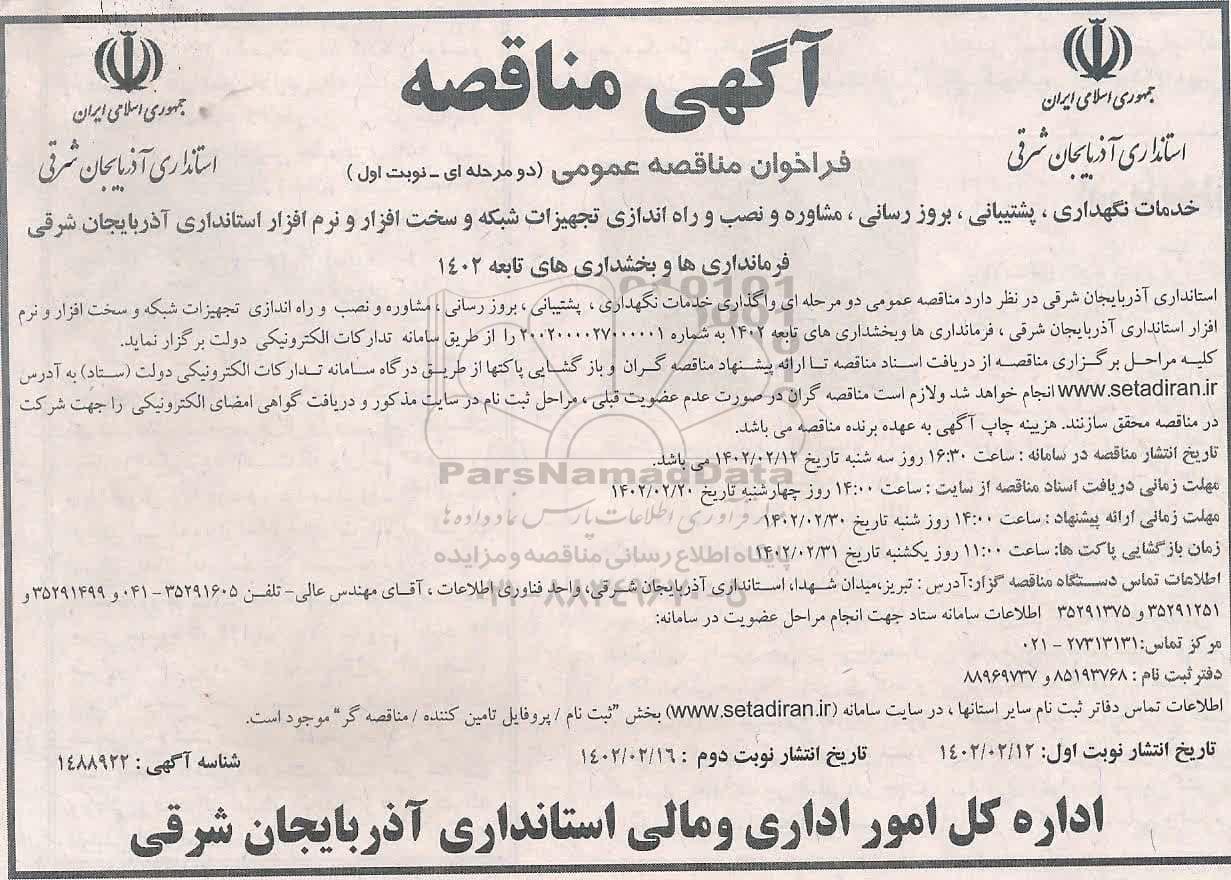 جمهوری اسلامی ایران
استانداری آذربایجان شرقی
آگهی مناقصه
جمهوری اسلامی ایران
استانداری آذربایجان شرقی
فراخوان مناقصه عمومی (دو مرحله ای ـ نوبت اول)
خدمات نگهداری ، پشتیبانی ، بروز رسانی ، مشاوره و نصب و راه اندازی تجهیزات شبکه و سخت افزار و نرم افزار استانداری آذربایجان شرقی
فرمانداری ها و بخشداری های تابعه ۱۴۰۲
استانداری آذربایجان شرقی در نظر دارد مناقصه عمومی دو مرحله ای واگذاری خدمات نگهداری ، پشتیبانی ، بروز رسانی ، مشاوره و نصب و راه اندازی تجهیزات شبکه و سخت افزار و نرم
افزار استانداری آذربایجان شرقی ، فرمانداری ها وبخشداری های تابعه ۱۴۰۲ به شماره ۲۰۰۲۰۰۰۰۲۷۰۰۰۰۰۱ را از طریق سامانه تدارکات الکترونیکی دولت برگزار نماید.
کلیه مراحل برگزاری مناقصه از دریافت اسناد مناقصه تا ارائه پیشنهاد مناقصه گران و باز گشایی پاکتها از طریق درگاه سامانه تدارکات الکترونیکی دولت (ستاد) به آدرس
www.setadiran.ir انجام خواهد شد ولازم است مناقصه گران در صورت عدم عضویت قبلی ، مراحل ثبت نام در سایت مذکور و دریافت گواهی امضای الکترونیکی را جهت شرکت
در مناقصه محقق سازنند. هزینه چاپ آگهی به عهده برنده مناقصه می باشد.
تاریخ انتشار مناقصه در سامانه : ساعت ۱۶:۳۰ روز سه شنبه تاریخ ۱۴۰۲/۰۲/۱۲ می باشد.
ParsNamadData
مهلت زمانی دریافت اسناد مناقصه از سایت : ساعت ۱۴:۰۰ روز چهارشنبه تاریخ ۱۴۰۲/۰۲/۲۰
مهلت زمانی ارائه پیشنهاد : ساعت ۱۴:۰۰ روز شنبه تاریخ ۱۴۰۲/۰۲/۳۰
فرآوری اطلاعات پارس نماد داده ها
زمان بازگشایی پاکت ها: ساعت ۱۱:۰۰ روز یکشنبه تاریخ ۱۴۰۲/۰۲/۳۱
پایگاه اطلاع رسانی مناقصه و مزایده
اطلاعات تماس دستگاه مناقصه گزار:آدرس : تبریز،میدان شهدا، استانداری آذربایجان شرقی، واحد فناوری اطلاعات ، آقای مهندس عالی- تلفن ۳۵۲۹۱۶۰۵ - ۰۴۱ و ۳۵۲۹۱۴۹۹ و
۳۵۲۹۱۲۵۱ و ۳۵۲۹۱۳۷۵ اطلاعات سامانه ستاد جهت انجام مراحل عضویت در سامانه:
مرکز تماس:۲۷۳۱۳۱۳۱ - ۰۲۱
دفتر ثبت نام : ۸۵۱۹۳۷۶۸ و ۸۸۹۶۹۷۳۷
اطلاعات تماس دفاتر ثبت نام سایر استانها ، در سایت سامانه (www.setadiran.ir) بخش "ثبت نام / پروفایل تامین کننده / مناقصه گر" موجود است.
تاریخ انتشار نوبت اول: ۱۴۰۲/۰۲/۱۲ تاریخ انتشار نوبت دوم : ۱۴۰۲/۰۲/۱۶ شناسه آگهی : ۱۴۸۸۹۲۲
اداره کل امور اداری ومالی استانداری آذربایجان شرقی